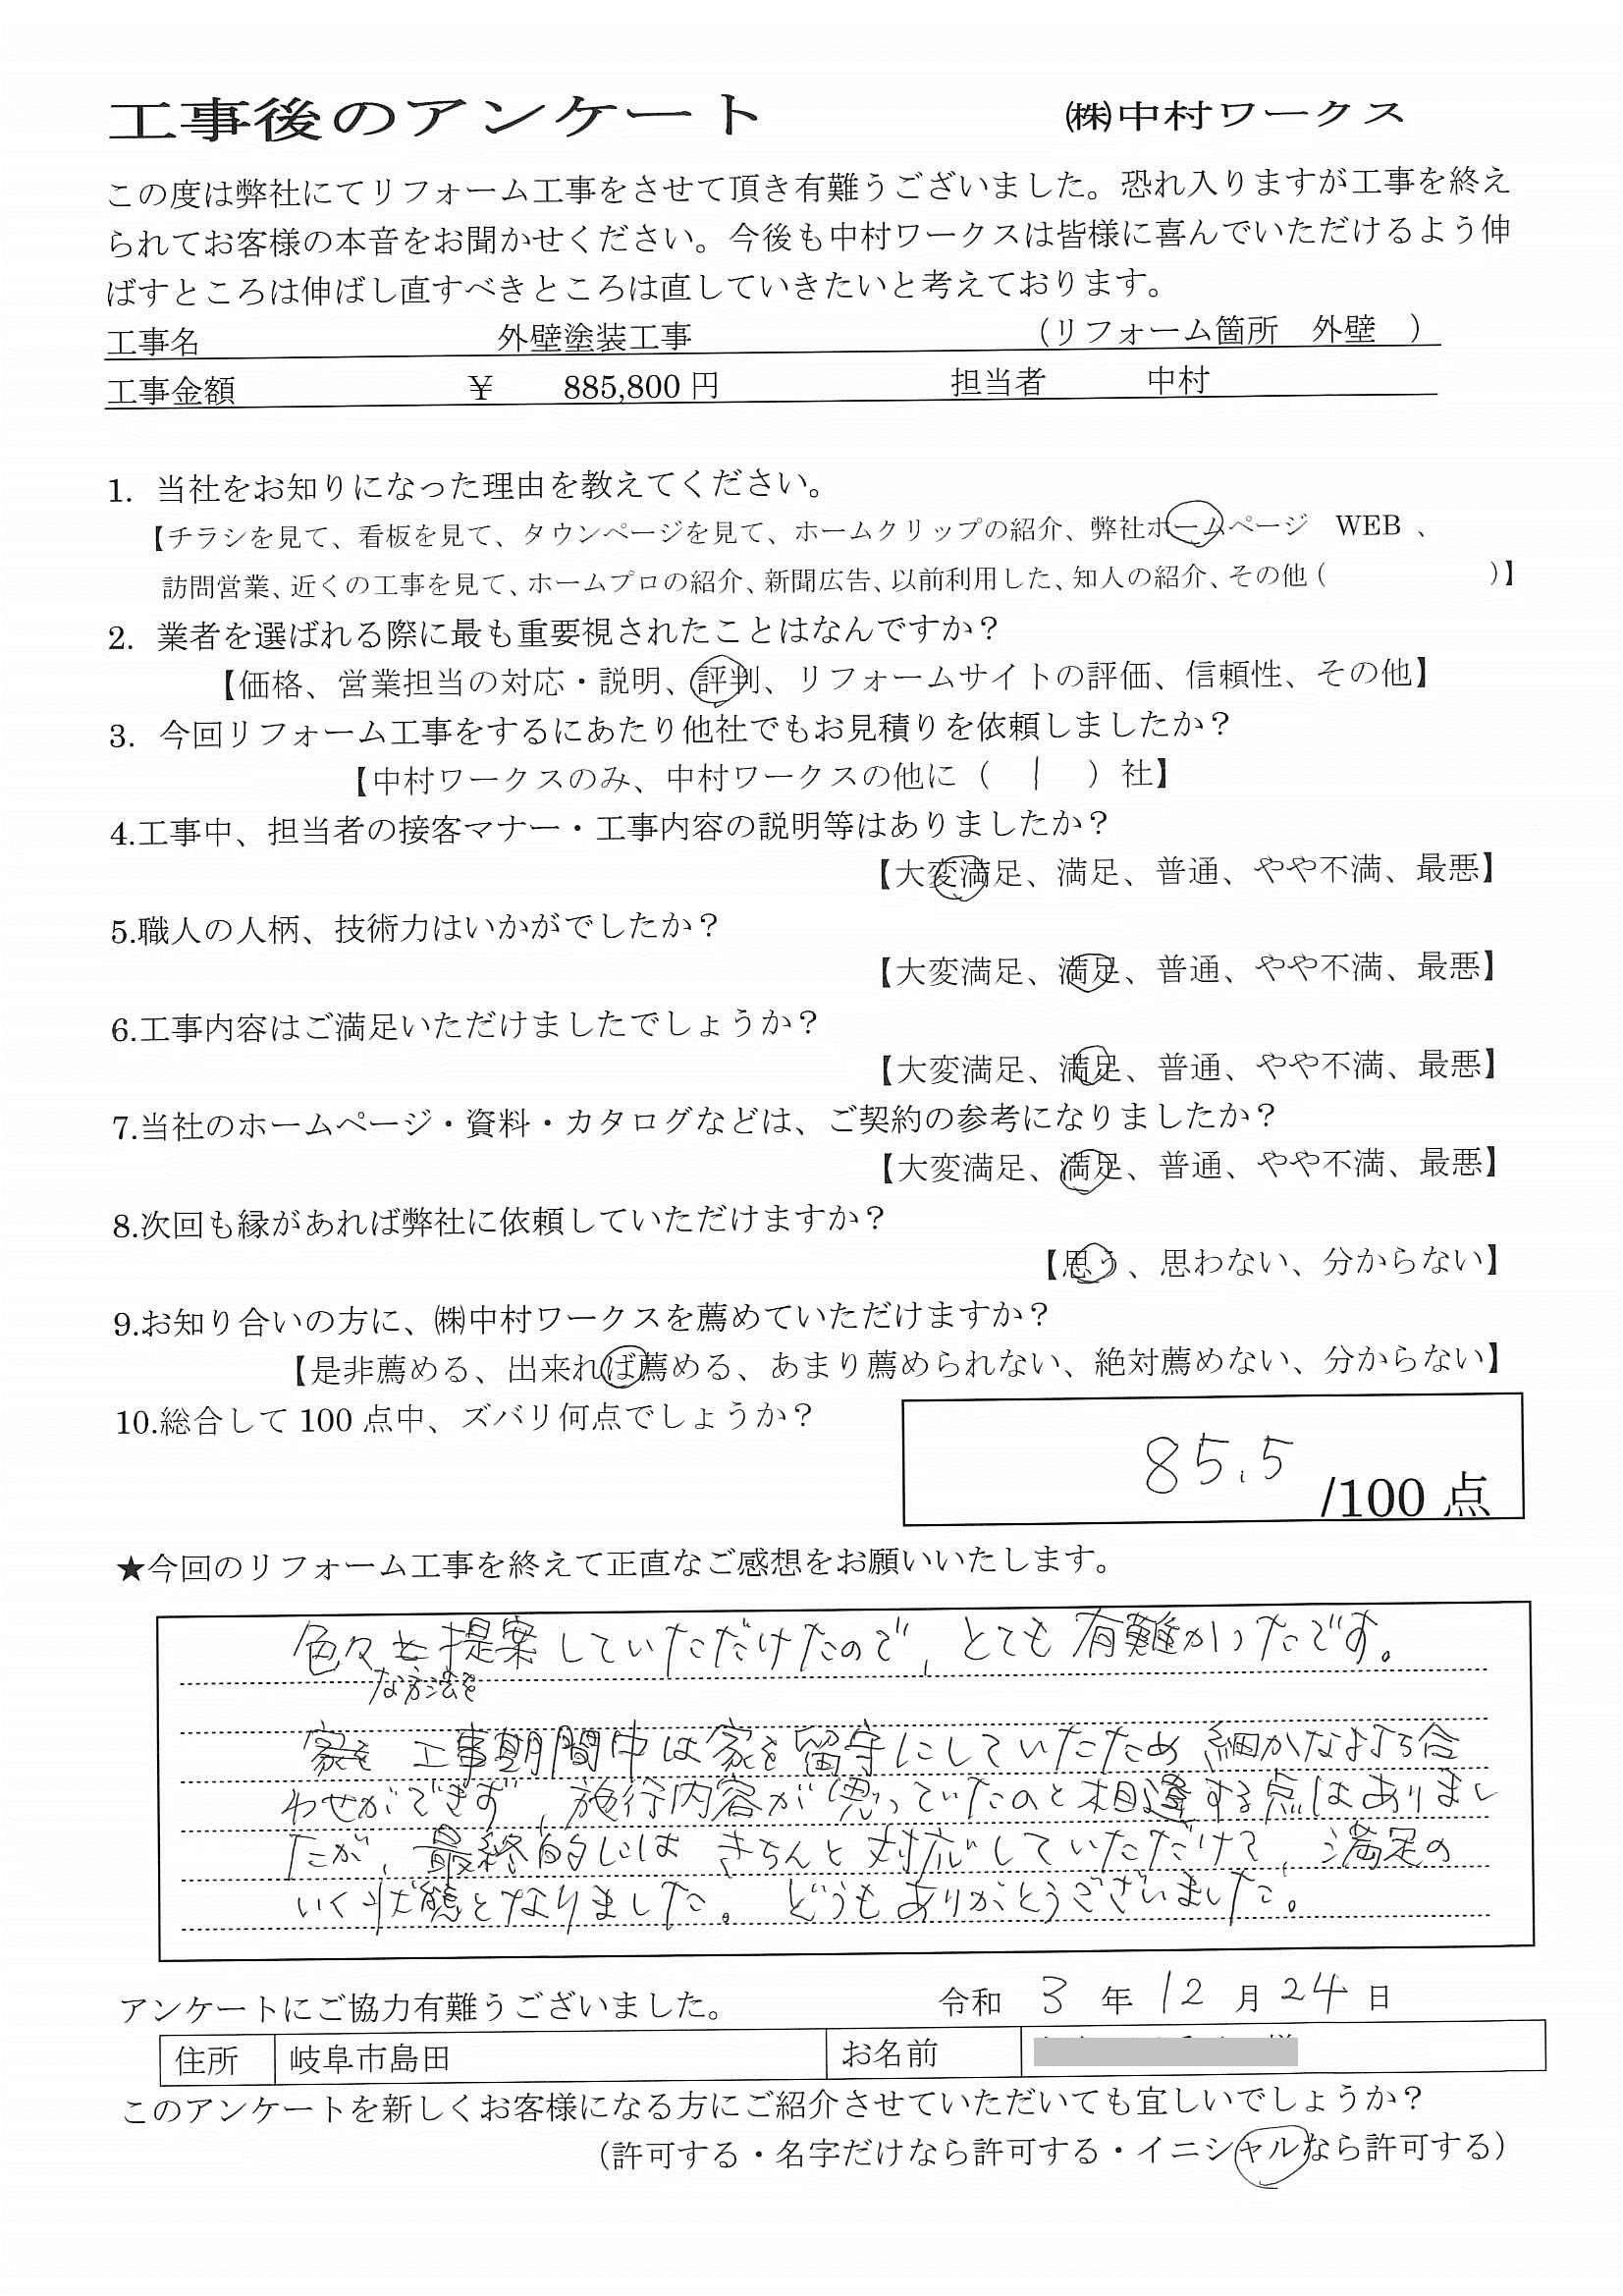 工事後のアンケート ㈱中村ワークス
この度は弊社にてリフォーム工事をさせて頂き有難うございました。恐れ入りますが工事を終え
られてお客様の本音をお聞かせください。今後も中村ワークスは皆様に喜んでいただけるよう伸
ばすところは伸ばし直すべきところは直していきたいと考えております。
工事名 外壁塗装工事 （リフォーム箇所 外壁 ）
工事金額 ￥ 885,800 円 担当者 中村
1. 当社をお知りになった理由を教えてください。
【チラシを見て、看板を見て、タウンページを見て、ホームクリップの紹介、弊社ホームページ WEB 、
訪問営業、近くの工事を見て、ホームプロの紹介、新聞広告、以前利用した、知人の紹介、その他（ ）】
2. 業者を選ばれる際に最も重要視されたことはなんですか？
【価格、営業担当の対応・説明、評判、リフォームサイトの評価、信頼性、その他】
3. 今回リフォーム工事をするにあたり他社でもお見積りを依頼しましたか？
【中村ワークスのみ、中村ワークスの他に（ 1 ）社】
4.工事中、担当者の接客マナー・工事内容の説明等はありましたか？
【大変満足、満足、普通、やや不満、最悪】
5.職人の人柄、技術力はいかがでしたか？
【大変満足、満足、普通、やや不満、最悪】
6.工事内容はご満足いただけましたでしょうか？
【大変満足、満足、普通、やや不満、最悪】
7.当社のホームページ・資料・カタログなどは、ご契約の参考になりましたか？
【大変満足、満足、普通、やや不満、最悪】
8.次回も縁があれば弊社に依頼していただけますか？
【思う、思わない、分からない】
9.お知り合いの方に、㈱中村ワークスを薦めていただけますか？
【是非薦める、出来れば薦める、あまり薦められない、絶対薦めない、分からない】
10.総合して 100 点中、ズバリ何点でしょうか？
85.5 /100 点
★今回のリフォーム工事を終えて正直なご感想をお願いいたします。
色々と提案していただけたので、とても有難かったです。
な方法を
家を 工事期間中は家を留守にしていたため細かな打ち合
わせができず、施行内容が思っていたのと相違する点はありまし
たが、最終的にはきちんと対応していただけて、満足の
いく状態となりました。どうもありがとうございました。
アンケートにご協力有難うございました。 令和 3 年 12 月 24 日
住所 岐阜市島田 お名前
このアンケートを新しくお客様になる方にご紹介させていただいても宜しいでしょうか？
（許可する・名字だけなら許可する・イニシャルなら許可する）